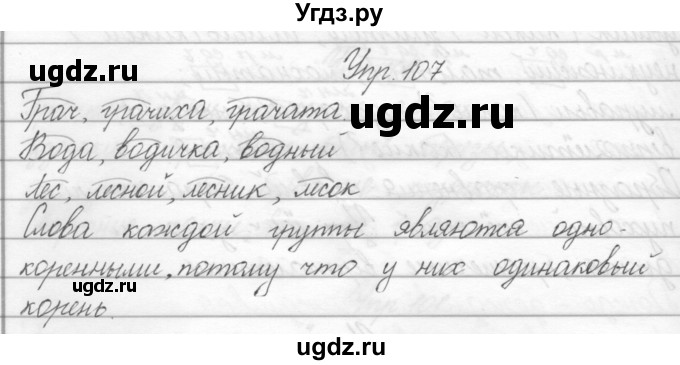 Угдз.ру
ugdz.ru
Упр. 107
ugdz.ru
Грач, грачиха, грачата.
ugdz.ru
Вода, водичка, водный
Лес, лесной, лесник, лесок
ugdz.ru
Слова каждой группы являются одно-
коренными, потому что у них одинаковый
ugdz.ru
ugdz.ru
корень.
ugdz.ru